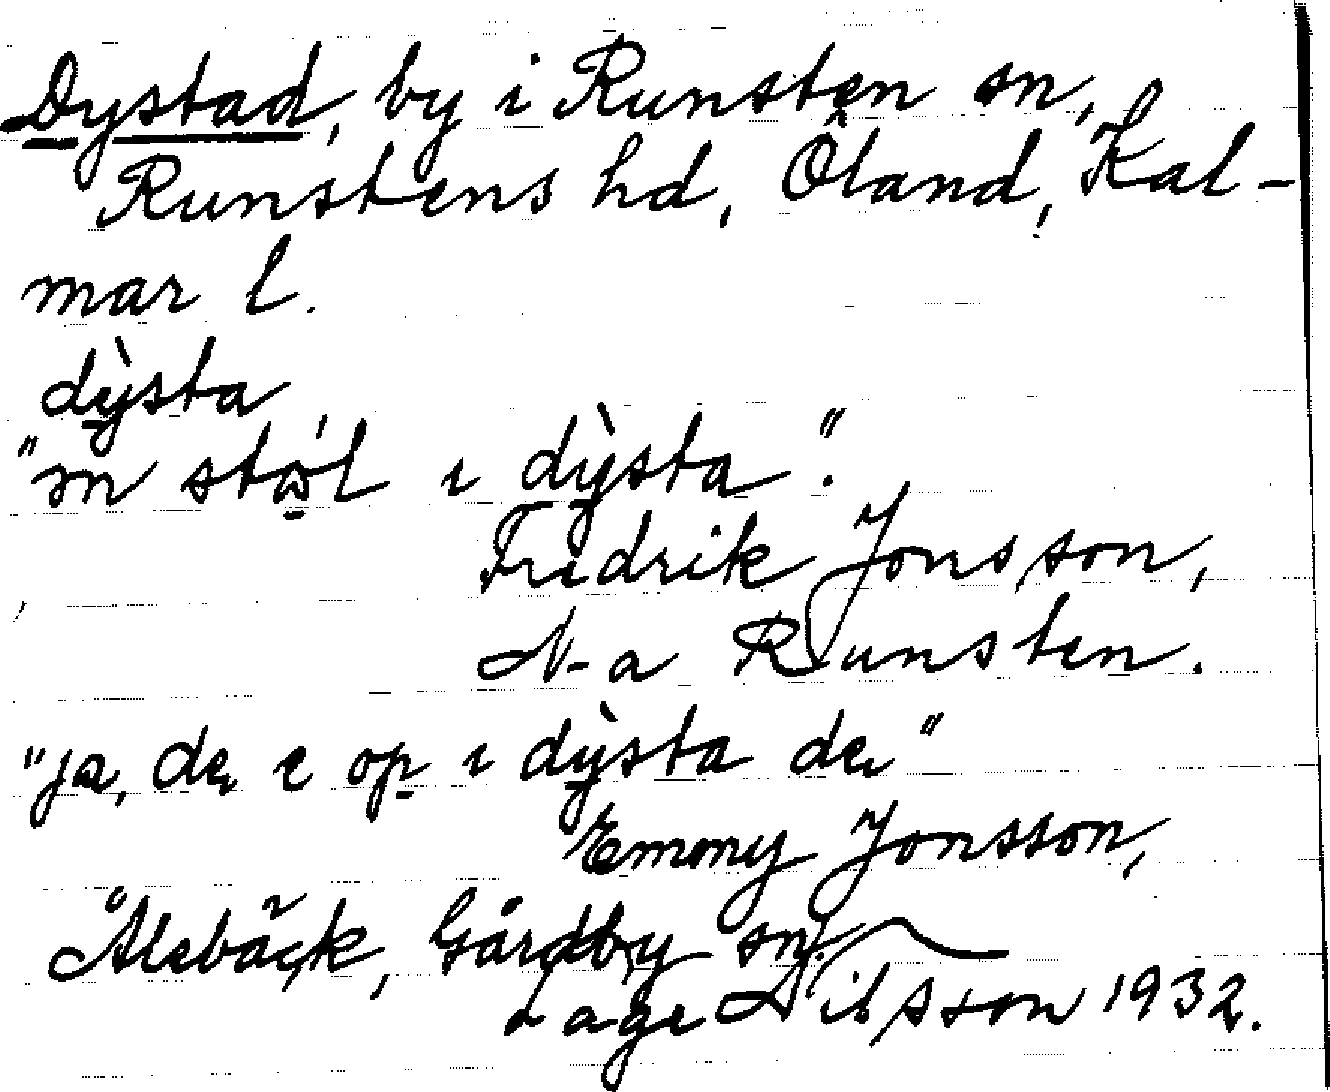 Dystad, by i Runsten sn,
Runstens hd, Öland, Kal-
mar l.
dỳsta
"ɪn stɷ̀l ɪ dỳsta".
Fredrik Jonsson,
N-a Runsten.
"ja, de, e op ɪ dỳsta de,"
Emmy Jonsson,
Ålebäck, Gårdby sn.
Lage Nilsson 1932.